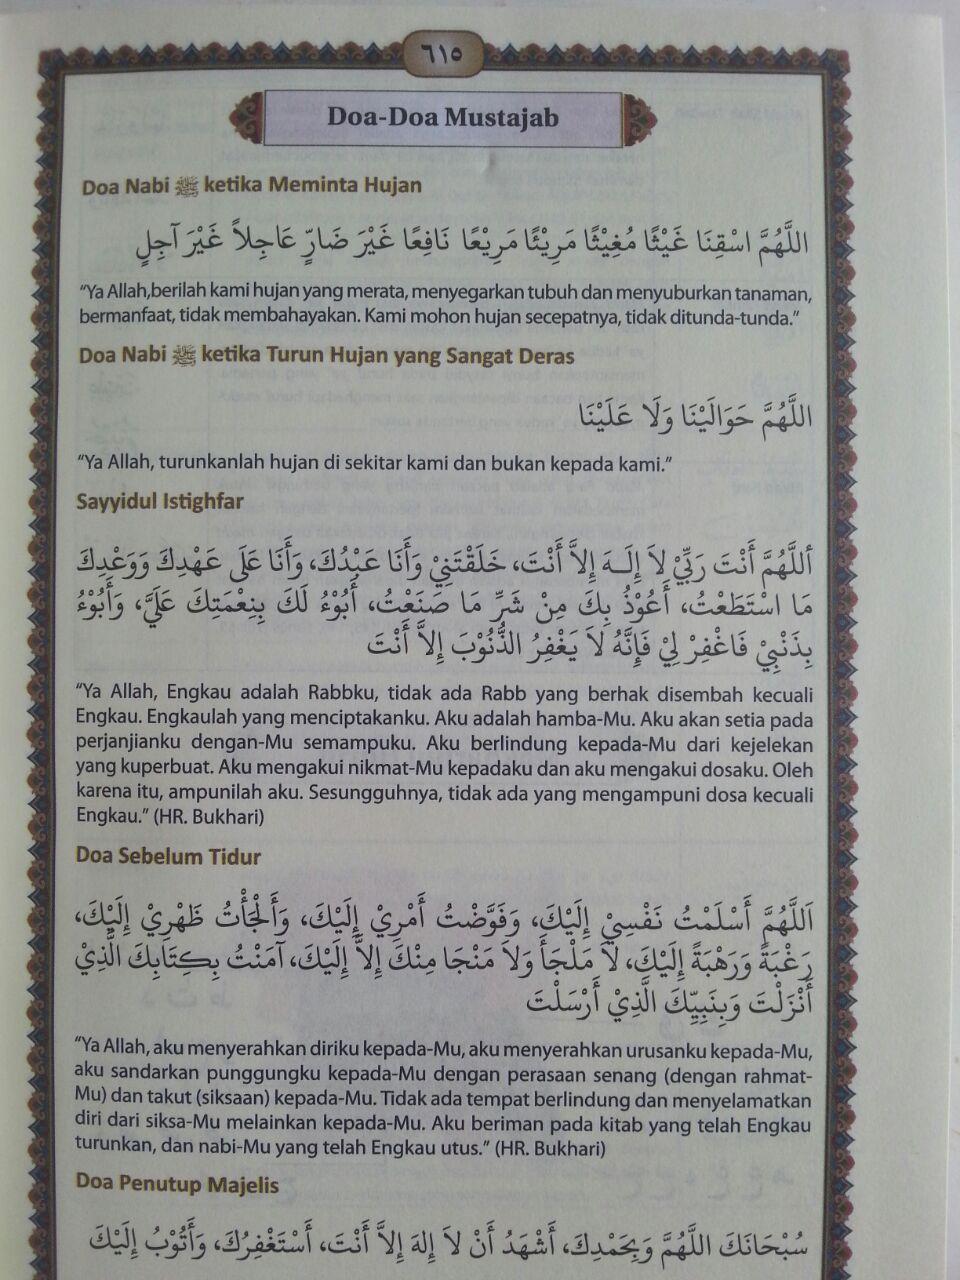 ٦١٥
Doa-Doa Mustajab
Doa Nabi ﷺ ketika Meminta Hujan
اللَّهُمَّ اسْقِنَا غَيْثًا مُغِيْثًا مَرِيْئًا مَرِيْعًا نَافِعًا غَيْرَ ضَارٍّ عَاجِلاً غَيْرَ آجِلٍ
“Ya Allah,berilah kami hujan yang merata, menyegarkan tubuh dan menyuburkan tanaman,
bermanfaat, tidak membahayakan. Kami mohon hujan secepatnya, tidak ditunda-tunda.”
Doa Nabi ﷺ ketika Turun Hujan yang Sangat Deras
اللَّهُمَّ حَوَالَيْنَا وَلَا عَلَيْنَا
“Ya Allah, turunkanlah hujan di sekitar kami dan bukan kepada kami.”
Sayyidul Istighfar
أللَّهُمَّ أَنْتَ رَبِّيْ لاَ إِلَـهَ إِلاَّ أَنْتَ، خَلَقْتَنِيْ وَأَنَا عَبْدُكَ، وَأَنَا عَلَى عَهْدِكَ وَوَعْدِكَ
مَا اسْتَطَعْتُ، أَعُوْذُ بِكَ مِنْ شَرِّ مَا صَنَعْتُ، أَبُوْءُ لَكَ بِنِعْمَتِكَ عَلَيَّ، وَأَبُوْءُ
بِذَنْبِيْ فَاغْفِرْ لِيْ فَإِنَّهُ لاَ يَغْفِرُ الذُّنُوْبَ إِلاَّ أَنْتَ
“Ya Allah, Engkau adalah Rabbku, tidak ada Rabb yang berhak disembah kecuali
Engkau. Engkaulah yang menciptakanku. Aku adalah hamba-Mu. Aku akan setia pada
perjanjianku dengan-Mu semampuku. Aku berlindung kepada-Mu dari kejelekan
yang kuperbuat. Aku mengakui nikmat-Mu kepadaku dan aku mengakui dosaku. Oleh
karena itu, ampunilah aku. Sesungguhnya, tidak ada yang mengampuni dosa kecuali
Engkau.” (HR. Bukhari)
Doa Sebelum Tidur
اَللَّهُمَّ أَسْلَمْتُ نَفْسِيْ إِلَيْكَ، وَفَوَّضْتُ أَمْرِيْ إِلَيْكَ، وَأَلْجَأْتُ ظَهْرِيْ إِلَيْكَ،
رَغْبَةً وَرَهْبَةً إِلَيْكَ، لاَ مَلْجَأَ وَلاَ مَنْجَا مِنْكَ إِلاَّ إِلَيْكَ، آمَنْتُ بِكِتَابِكَ الَّذِيْ
أَنْزَلْتَ وَبِنَبِيِّكَ الَّذِيْ أَرْسَلْتَ
“Ya Allah, aku menyerahkan diriku kepada-Mu, aku menyerahkan urusanku kepada-Mu,
aku sandarkan punggungku kepada-Mu dengan perasaan senang (dengan rahmat-
Mu) dan takut (siksaan) kepada-Mu. Tidak ada tempat berlindung dan menyelamatkan
diri dari siksa-Mu melainkan kepada-Mu. Aku beriman pada kitab yang telah Engkau
turunkan, dan nabi-Mu yang telah Engkau utus.” (HR. Bukhari)
Doa Penutup Majelis
سُبْحَانَكَ اللَّهُمَّ وَبِحَمْدِكَ، أَشْهَدُ أَنْ لاَ إِلهَ إِلاَّ أَنْتَ، أَسْتَغْفِرُكَ، وَأَتُوْبُ إِلَيْكَ